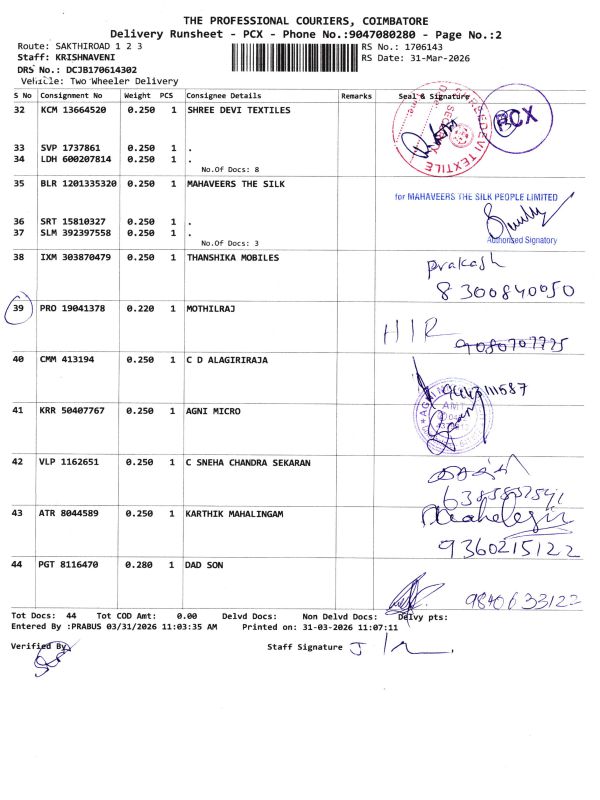 THE PROFESSIONAL COURIERS, COIMBATORE
Delivery Runsheet - PCX - Phone No.:9047080280 - Page No.:2
Route: SAKTHIROAD 1 2 3 RS No.: 1706143
Staff: KRISHNAVENI RS Date: 31-Mar-2026
DRS No.: DCJB170614302
Vehicle: Two Wheeler Delivery
S No Consignment No Weight PCS Consignee Details Remarks Seal & Signature
32 KCM 13664520 0.250 1 SHREE DEVI TEXTILES
SECURITY
PCX
33 SVP 1737861 0.250 1 .
34 LDH 600207814 0.250 1 .
No.Of Docs: 8
35 BLR 1201335320 0.250 1 MAHAVEERS THE SILK
for MAHAVEERS THE SILK PEOPLE LIMITED
36 SRT 15810327 0.250 1 .
37 SLM 392397558 0.250 1 .
Authorised Signatory
No.Of Docs: 3
38 IXM 303870479 0.250 1 THANSHIKA MOBILES
prakash
8300840050
39 PRO 19041378 0.220 1 MOTHILRAJ
HIR
9080707725
40 CMM 413194 0.250 1 C D ALAGIRIRAJA
9443111587
41 KRR 50407767 0.250 1 AGNI MICRO
42 VLP 1162651 0.250 1 C SNEHA CHANDRA SEKARAN
43 ATR 8044589 0.250 1 KARTHIK MAHALINGAM
9360215122
44 PGT 8116470 0.280 1 DAD SON
9840633122
Tot Docs: 44 Tot COD Amt: 0.00 Delvd Docs: Non Delvd Docs: Delvy pts:
Entered By :PRABUS 03/31/2026 11:03:35 AM Printed on: 31-03-2026 11:07:11
Verified By Staff Signature